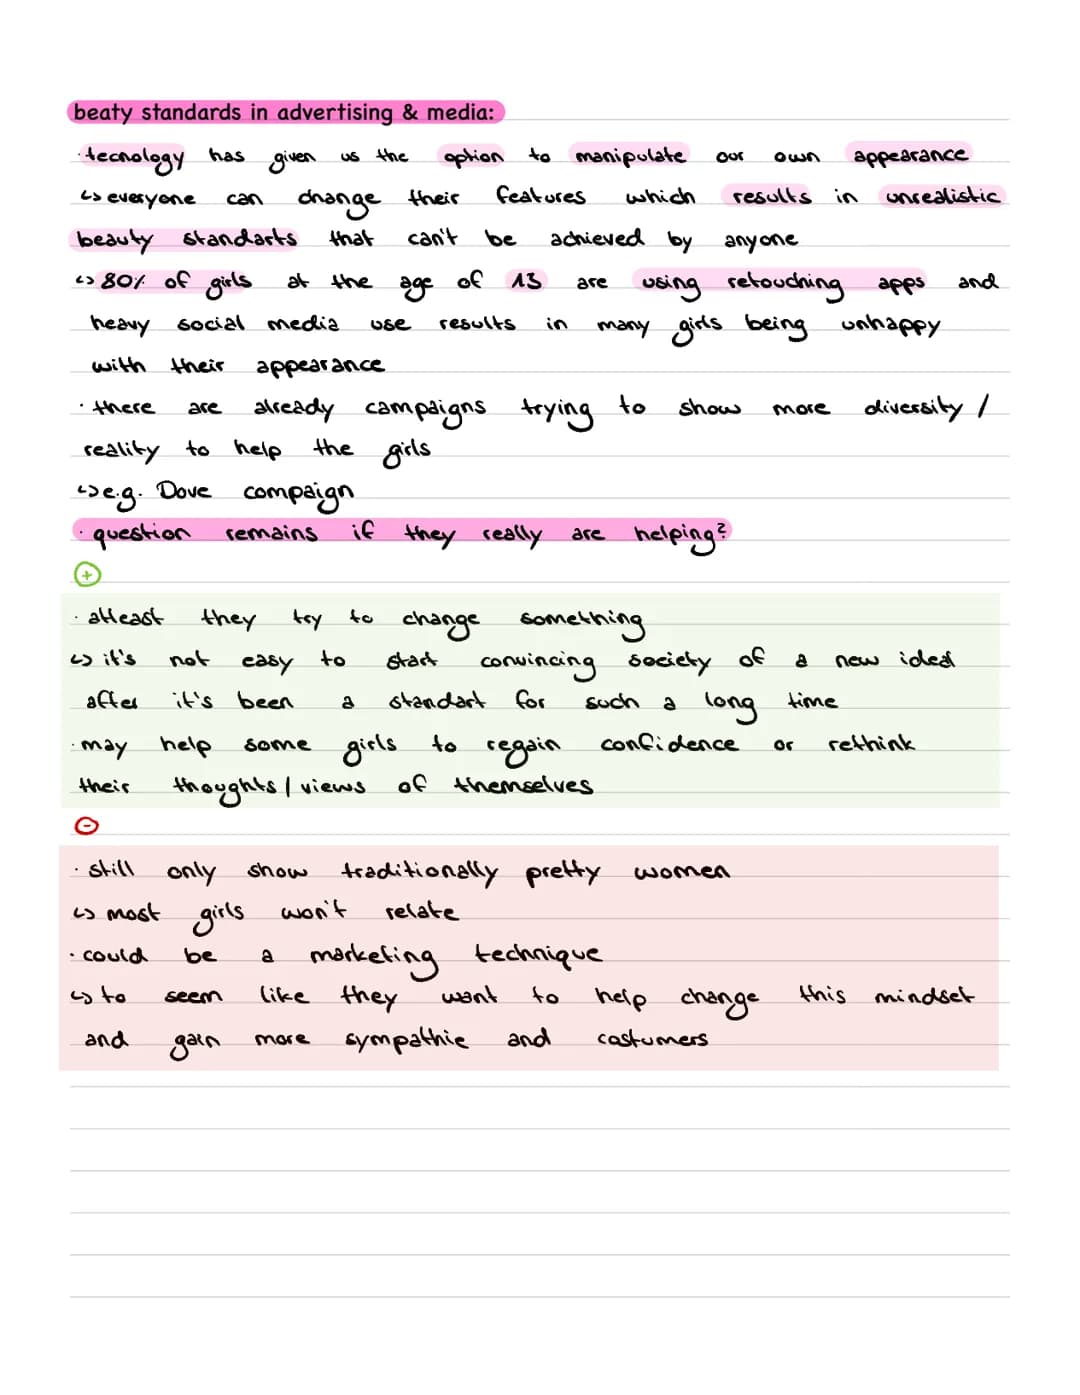 beaty standards in advertising & media:
· tecnology has given us the option to manipulate our own appearance
↳ everyone can change their features which results in unrealistic
beauty standarts that can't be achieved by anyone
↳ 80% of girls at the age of 13 are using retouching apps and
heavy social media use results in many girls being unhappy
with their appearance
· there are already campaigns trying to show more diversity /
reality to help the girls
↳ e.g. Dove compaign
· question remains if they really are helping?
+
· atleast they try to change something
↳ it's not easy to start convincing society of a new ideal
after it's been a standart for such a long time
· may help some girls to regain confidence or rethink
their thoughts / views of themselves
-
· still only show traditionally pretty women
↳ most girls won't relate
· could be a marketing technique
↳ to seem like they want to help change this mindset
and gain more sympathie and costumers